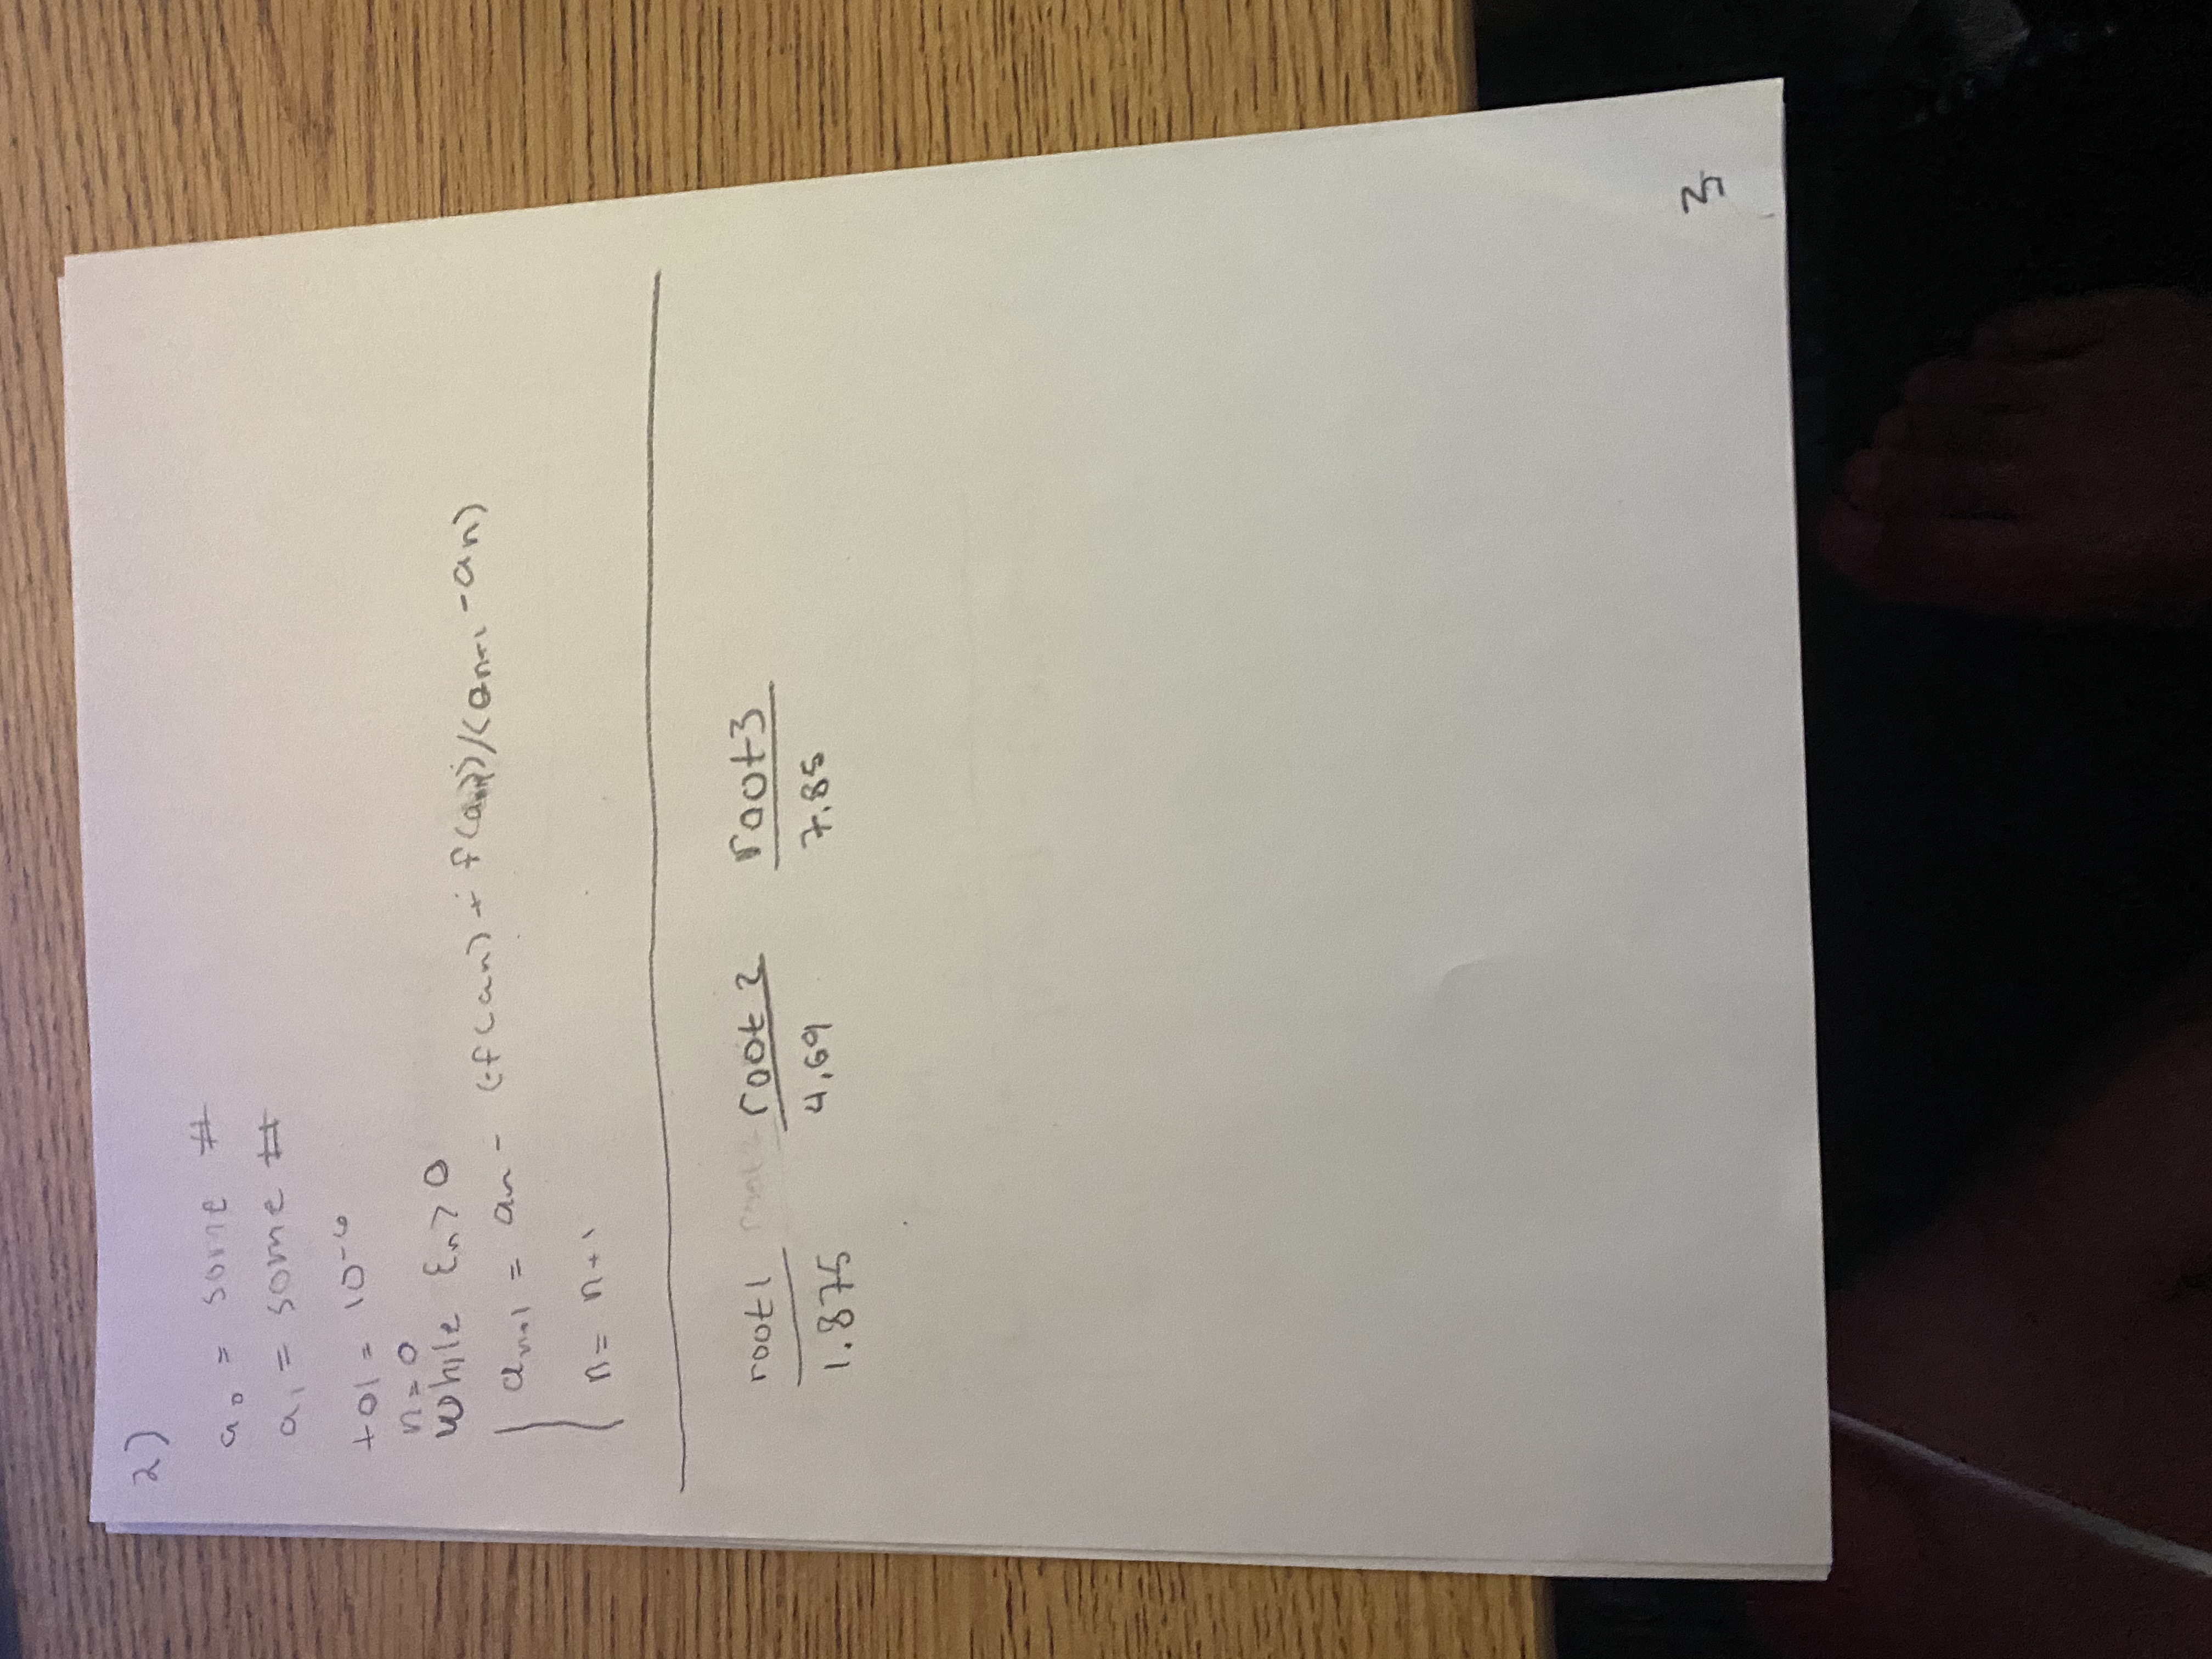 2)
a₀ = some #
a₁ = some #
tol = 10⁻⁶
n = 0
While εₙ > 0
aₙ₊₁ = aₙ - (f(aₙ) + f( ))/(aₙ₊₁ - aₙ)
n = n+1
root1 root2 root3
1.875 4.69 7.85
3